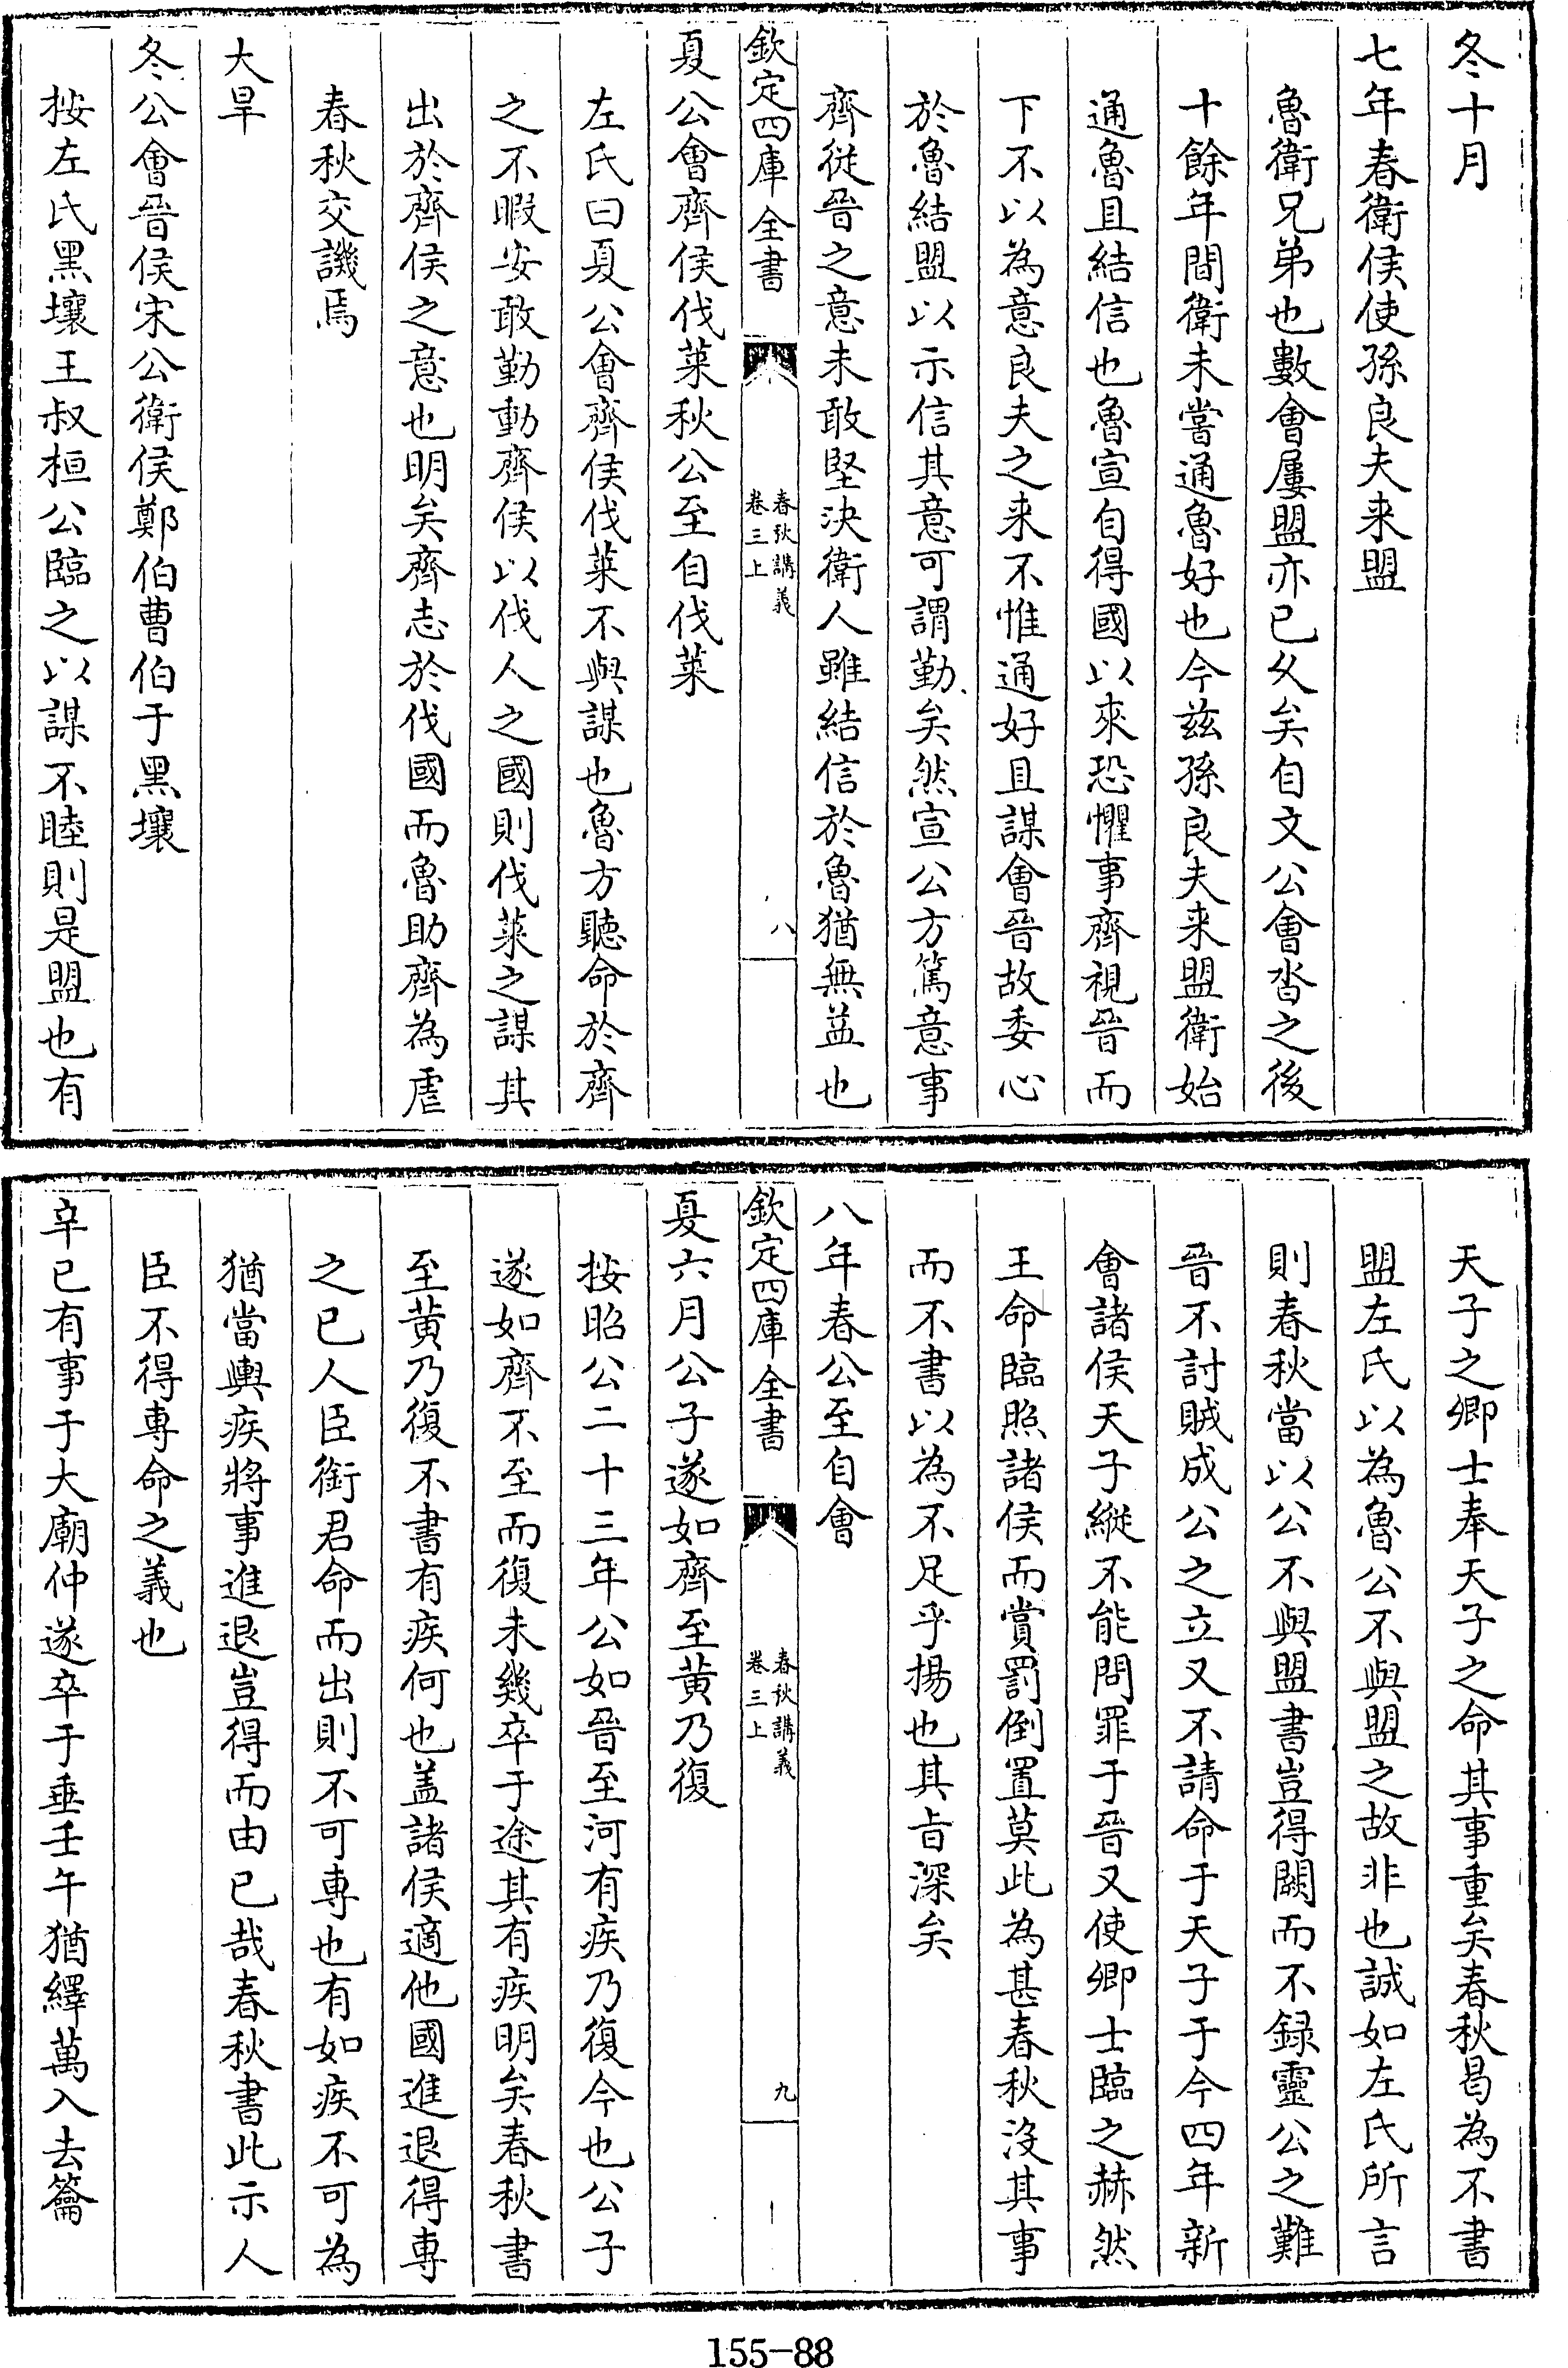 冬十月
七年春衛侯使孫良夫来盟
魯衛兄弟也數會屢盟亦已久矣自文公會沓之後
十餘年間衛未嘗通魯好也今兹孫良夫来盟衛始
通魯且結信也魯宣自得國以來恐懼事齊視晉而
下不以為意良夫之来不惟通好且謀會晉故委心
於魯結盟以示信其意可謂勤矣然宣公方篤意事
齊従晉之意未敢堅決衛人雖結信於魯猶無益也
欽定四庫全書
春秋講義
卷三上
八
夏公會齊侯伐萊秋公至自伐萊
左氏曰夏公會齊侯伐萊不與謀也魯方聽命於齊
之不暇安敢勤動齊侯以伐人之國則伐萊之謀其
出於齊侯之意也明矣齊志於伐國而魯助齊為虐
春秋交譏焉
大旱
冬公會晉侯宋公衛侯鄭伯曹伯于黑壤
按左氏黑壤王叔桓公臨之以謀不睦則是盟也有
天子之卿士奉天子之命其事重矣春秋曷為不書
盟左氏以為魯公不與盟之故非也誠如左氏所言
則春秋當以公不與盟書豈得闕而不録靈公之難
晉不討賊成公之立又不請命于天子于今四年新
會諸侯天子縱不能問罪于晉又使卿士臨之赫然
王命臨照諸侯而賞罰倒置莫此為甚春秋沒其事
而不書以為不足乎揚也其旨深矣
八年春公至自會
欽定四庫全書
春秋講義
卷三上
九
夏六月公子遂如齊至黄乃復
按昭公二十三年公如晉至河有疾乃復今也公子
遂如齊不至而復未幾卒于途其有疾明矣春秋書
至黄乃復不書有疾何也盖諸侯適他國進退得專
之已人臣銜君命而出則不可專也有如疾不可為
猶當輿疾將事進退豈得而由已哉春秋書此示人
臣不得專命之義也
辛已有事于大廟仲遂卒于垂壬午猶繹萬入去籥
155-88